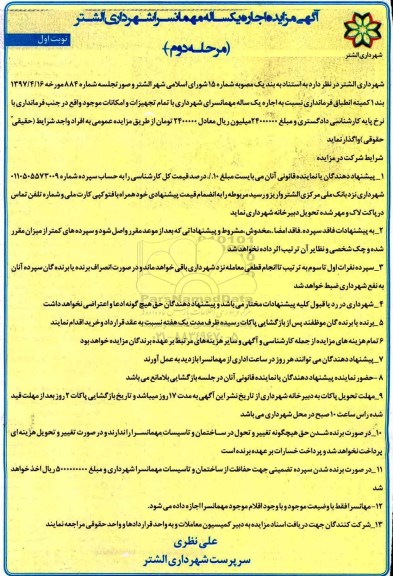 آگهی مزایده اجاره یکساله مهمانسرا شهرداری الشتر
نوبت اول
(مرحله دوم)
شهرداری الشتر
شهرداری الشتر در نظر دارد به استناد به بند یک مصوبه شماره ۱۵ شورای اسلامی شهر الشتر و صورتجلسه شماره ۸۸۴ مورخه ۱۳۹۷/۴/۱۶
بند ۱ کمیته انطباق فرمانداری نسبت به اجاره یک ساله مهمانسرای شهرداری با تمام تجهیزات و امکانات موجود واقع در جنب فرمانداری با
نرخ پایه کارشناسی دادگستری و مبلغ ۲۴۰۰۰۰۰۰ میلیون ریال معادل ۲۴۰۰۰۰۰ تومان از طریق مزایده عمومی به افراد واجد شرایط (حقیقی
حقوقی) واگذار نماید
شرایط شرکت در مزایده
۱_ پیشنهاد دهندگان یا نماینده قانونی آنان می بایست مبلغ ۱۰٪ درصد قیمت کل کارشناسی را به حساب سپرده شماره ۰۱۱۰۵۰۵۵۷۳۰۰۹
شهرداری نزد بانک ملی مرکزی الشتر واریز و رسید مربوطه را به انضمام قیمت پیشنهادی خود همراه با فتوکپی کارت ملی و شماره تلفن تماس
در پاکت لاک و مهر شده تحویل دبیرخانه شهرداری نماید
۲_ به پیشنهادات فاقد سپرده، فاقد امضا، مخدوش، مشروط و پیشنهاداتی که بعد از موعد مقرر واصل شود و سپرده های کمتر از میزان مقرر
شده و چک شخصی و نظایر آن ترتیب اثر داده نخواهد شد
۳_ سپرده نفرات اول تا سوم به ترتیب تا انجام قطعی معامله نزد شهرداری باقی خواهد ماند و در صورت انصراف برنده یا برنده گان سپرده آنان
به نفع شهرداری ضبط خواهد شد
۴_ شهرداری در رد یا قبول کلیه پیشنهادات مختار می باشد و پیشنهاد دهندگان حق هیچ گونه ادعا و اعتراضی نخواهند داشت
۵_ برنده یا برنده گان موظفند پس از بازگشایی پاکات رسیده ظرف مدت یک هفته نسبت به عقد قرارداد و خرید اقدام نمایند
۶ تمام هزینه های مزایده از جمله کارشناسی و آگهی و سایر هزینه های مرتبط بر عهده برندگان مزایده خواهد بود
۷_ پیشنهاد دهندگان می توانند هر روز در ساعت اداری از مهمانسرا بازدید به عمل آورند
۸- حضور نماینده پیشنهاد دهندگان یا نماینده قانونی آنان در جلسه بازگشایی بلامانع می باشد
۹_ مهلت تحویل پاکات به دبیرخانه شهرداری از تاریخ نشر این آگهی به مدت ۱۷ روز میباشد و تاریخ بازگشایی پاکات ۲ روز بعد از مهلت قید
شده راس ساعت ۱۰ صبح در محل شهرداری می باشد
۱۰_ در صورت برنده شدن حق هیچگونه تغییر و تحول در ساختمان و تاسیسات مهمانسرا را ندارند و در صورت تغییر و تحویل هزینه ای
پرداخت نخواهد شد و پرداخت خسارات بر عهده برنده است
۱۱_ در صورت برنده شدن سپرده تضمینی جهت حفاظت از ساختمان و تاسیسات مهمانسرا شهرداری و مبلغ ۵۰۰۰۰۰۰۰۰ ریال اخذ خواهد
شد
۱۲- مهمانسرا فقط با وضیعت موجود و با وجود اقلام موجود مهمانسرا اجازه داده می شود.
۱۳_ شرکت کنندگان جهت دریافت اسناد مزایده به دبیر کمیسیون معاملات و به واحد قراردادها و واحد حقوقی مراجعه نمایند
علی نظری
سرپرست شهرداری الشتر